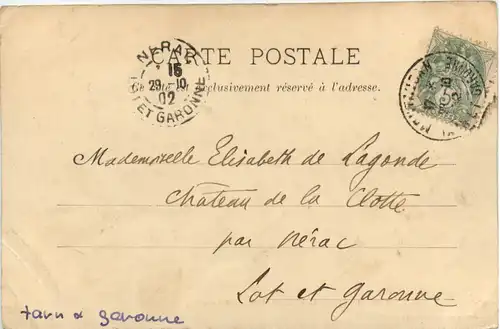 CARTE POSTALE
NERAC
15
29 - 10
02
LOT ET GARONNE
Ce côté est exclusivement réservé à l'adresse.
Mademoiselle Elisabeth de Lagonde
Château de la Clotte
par Nérac
Lot et Garonne
tarn & garonne